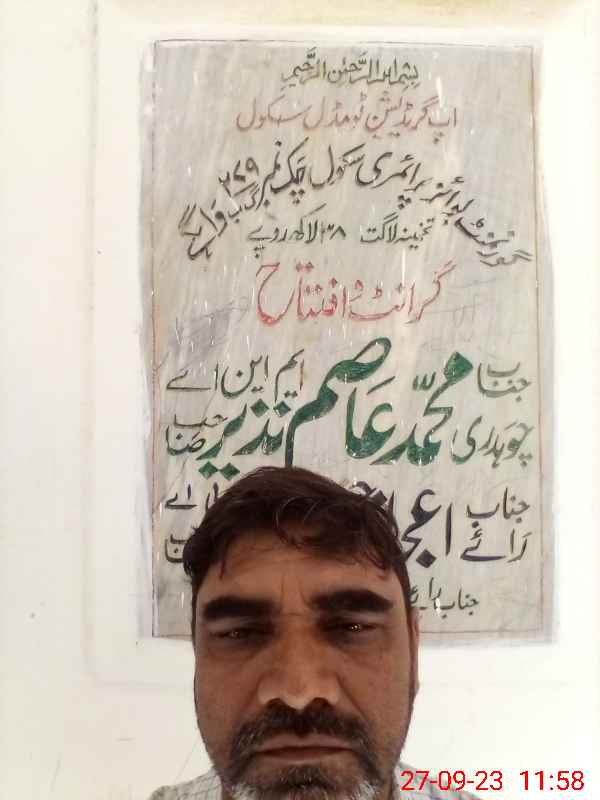 بسم اللہ الرحمٰن الرحیم
اپ گریڈیشن ٹو مڈل سکول
گورنمنٹ بوائز پرائمری سکول چک نمبر ۲۷۹ گ ب
تخمینہ لاگت ۳۸ لاکھ روپے
گرانٹ و افتتاح
جناب محمد عاصم نذیر ایم این اے
چوہدری صاحب
جناب
رائے
جناب رائے
27-09-23 11:58